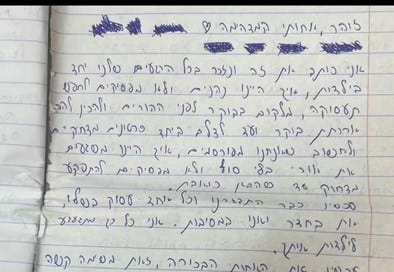 זוהר, אחותי המדהימה ♡
אני כותב את זה ונזכר בכל הרגעים שלנו יחד
בילדות, איך היינו נהנים ולא מפסיקים לחפש
תעסוקה, מלקום בבוקר לפני ההורים ולהכין להם
ארוחת בוקר ועד לצלם ביחד סרטונים מצחיקים
ולחשוב שאנחנו מפורסמים, איך היינו משגעים
את אורי בלי סוף ולא מפסיקים להתפקע
מצחוק עד שהבטן כואבת.
עכשיו כבר התבגרנו וכל אחד עסוק בשלו,
את בחדר ואני במסיבות. אני כל כך מתגעגע
לילדות איתך.
את האחות הבכורה, וזאת משימה קשה